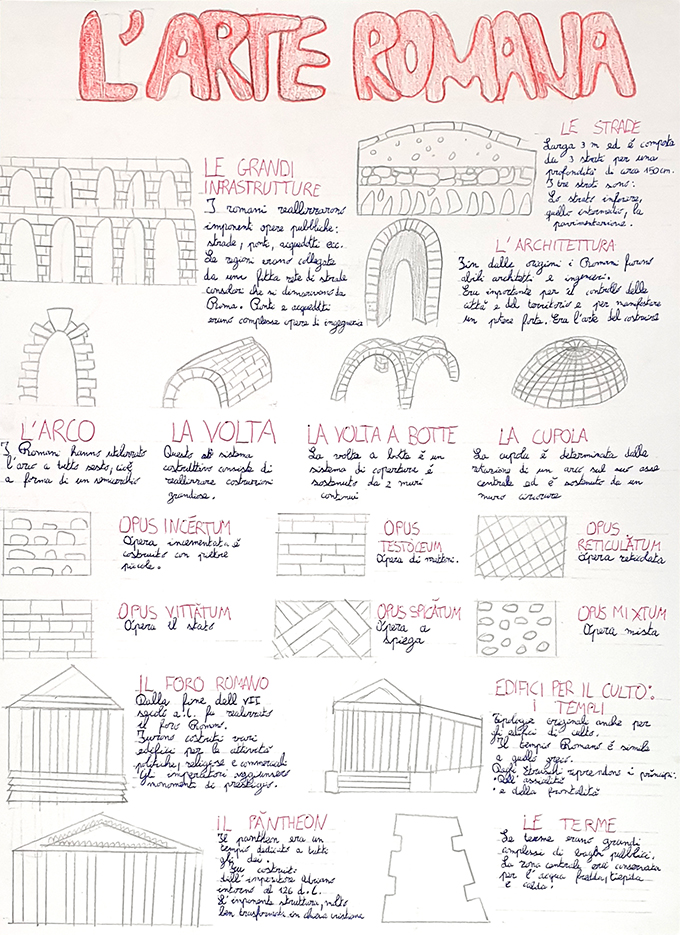 L'ARTE ROMANA
LE GRANDI
INFRASTRUTTURE
I romani realizzarono
imponenti opere pubbliche:
strade, ponti, acquedotti ecc.
Le regioni erano collegate
da una fitta rete di strade
consolari che si diramavano da
Roma. Ponti e acquedotti
erano complesse opere di ingegneria
LE STRADE
Larga 3 m ed è composta
da 3 strati per una
profondità di circa 150 cm.
I tre strati sono:
Lo strato inferiore,
quello intermedio, la
pavimentazione.
L'ARCHITETTURA
Sin dalle origini i Romani furono
abili architetti e ingegneri.
Era importante per il controllo delle
città e del territorio e per manifestare
un potere forte. Era l'arte del costruire
L'ARCO
I Romani hanno utilizzato
l'arco a tutto sesto, cioè
a forma di un semicerchio
LA VOLTA
Questo sistema
costruttivo consiste di
realizzare costruzioni
grandiose.
LA VOLTA A BOTTE
La volta a botte è un
sistema di coperture è
sostenuto da 2 muri
continui
LA CUPOLA
La cupola è determinata dalla
rotazione di un arco sul suo asse
centrale ed è sostenuto da un
muro circolare
OPUS INCÉRTUM
Opera incementata è
costruito con pietre
piccole.
OPUS
TESTÓCEUM
Opera di mattoni.
OPUS
RETICULĀTUM
Opera reticolata
OPUS VITTĀTUM
Opera il stato
OPUS SPICĀTUM
Opera a
spiega
OPUS MIXTUM
Opera mista
IL FORO ROMANO
Dalla fine dell VII
secolo a.C. fu realizzato
il foro Romano.
Furono costruiti vari
edifici per le attività
politiche, religiose e commerciali
Gli imperatori aggiunsero
monumenti di prestigio.
EDIFICI PER IL CULTO:
I TEMPLI
Tipologie originali anche per
gli edifici di culto.
Il tempio Romano è simile
a quello greco.
Dagli Etruschi riprendono i principi:
• Dell'assialità
• e della frontalità
IL PĂNTHEON
Il pantheon era un
tempio dedicato a tutti
gli dei.
Fu costruito
dall'imperatore Adriano
intorno al 126 d.C.
L'imponente struttura, molto
ben trasformata in chiesa cristiana
LE TERME
Le terme erano grandi
complessi di bagni pubblici.
La zona centrale era conservata
per l'acqua fredda, tiepida
e calda.